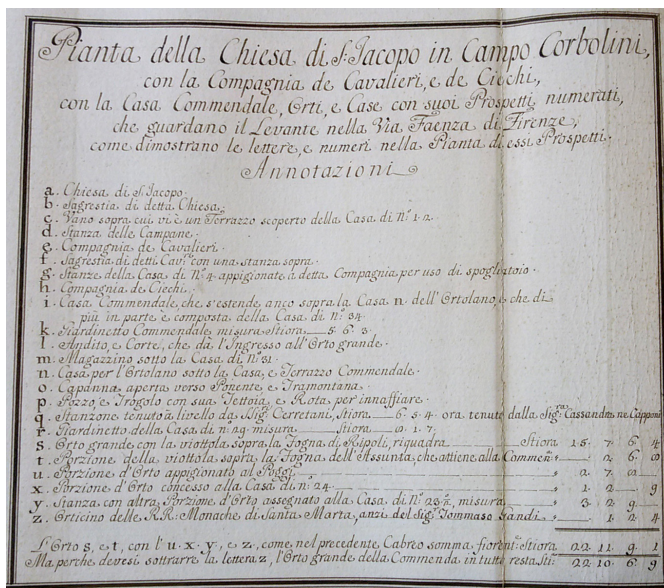 Pianta della Chiesa di S. Jacopo in Campo Corbolini,
con la Compagnia de Cavalieri, e de Ciechi,
con la Casa Commendale, Orti, e Case con suoi Prospetti numerati,
che guardano il Levante nella Via Faenza di Firenze,
come dimostrano le lettere, e numeri nella Pianta, di essi Prospetti.
Annotazioni
a. Chiesa di S. Jacopo.
b. Sagrestia di detta Chiesa.
c. Vano sopra cui vi è un Terrazzo scoperto della Casa di N.º 12.
d. Stanza delle Campane.
e. Compagnia de Cavalieri.
f. Sagrestia di detti Cav.ri con una stanza sopra.
g. Stanze della Casa di N.º 4 appigionate a detta Compagnia per uso di spogliatoio.
h. Compagnia de Ciechi.
i. Casa Commendale, che s'estende anco sopra la Casa n. dell'Ortolano, e che di
più in parte è composta della Casa di n.º 34
k. Giardinetto Commendale misura Stiora 5. 6. 3.
l. Andito, e Corte, che dà l'Ingresso all'Orto grande.
m. Magazzino sotto la Casa di N.º 31.
n. Casa per l'Ortolano sotto la Casa, e Terrazzo Commendale.
o. Capanna aperta verso Ponente, e Tramontana.
p. Pozzo, e Trogolo con sua Tettoia, e Rota per innaffiare.
q. Stanzone tenuto a livello da Sig.ri Cerretani, Stiora 6. 5. 4. ora tenuto dalla Sig.ra Cassandra ne Capponi
r. Giardinetto della Casa di n.º 29. misura Stiora 1. 7.
s. Orto grande con la viottola sopra la Fogna di Ripoli, riquadra Stiora 15. 7. 6. 4
t. Porzione della viottola sopra la Fogna dell'Assunta, che attiene alla Commen.
u. Porzione d'Orto appigionato al Poggi 2. 7. 2
x. Porzione d'Orto concesso alla Casa di n.º 24 1. 2. 9
y. Stanza con altra Porzione d'Orto assegnato alla Casa di N.º misura 3. 2. 9
z. Orticino delle RR: Monache di Santa Marta, anzi del Sig.r Tommaso Gandi 1. 2. 4
L'Orto s, e t, con l'u. x. y, e z, come nel precedente Cabreo somma fiorent.e Stiora 22. 11. 9. 1
Ma perche devesi sottrarre la lettera z, l'Orto grande della Commenda in tutto resta Sti: 22. 10. 6. 9